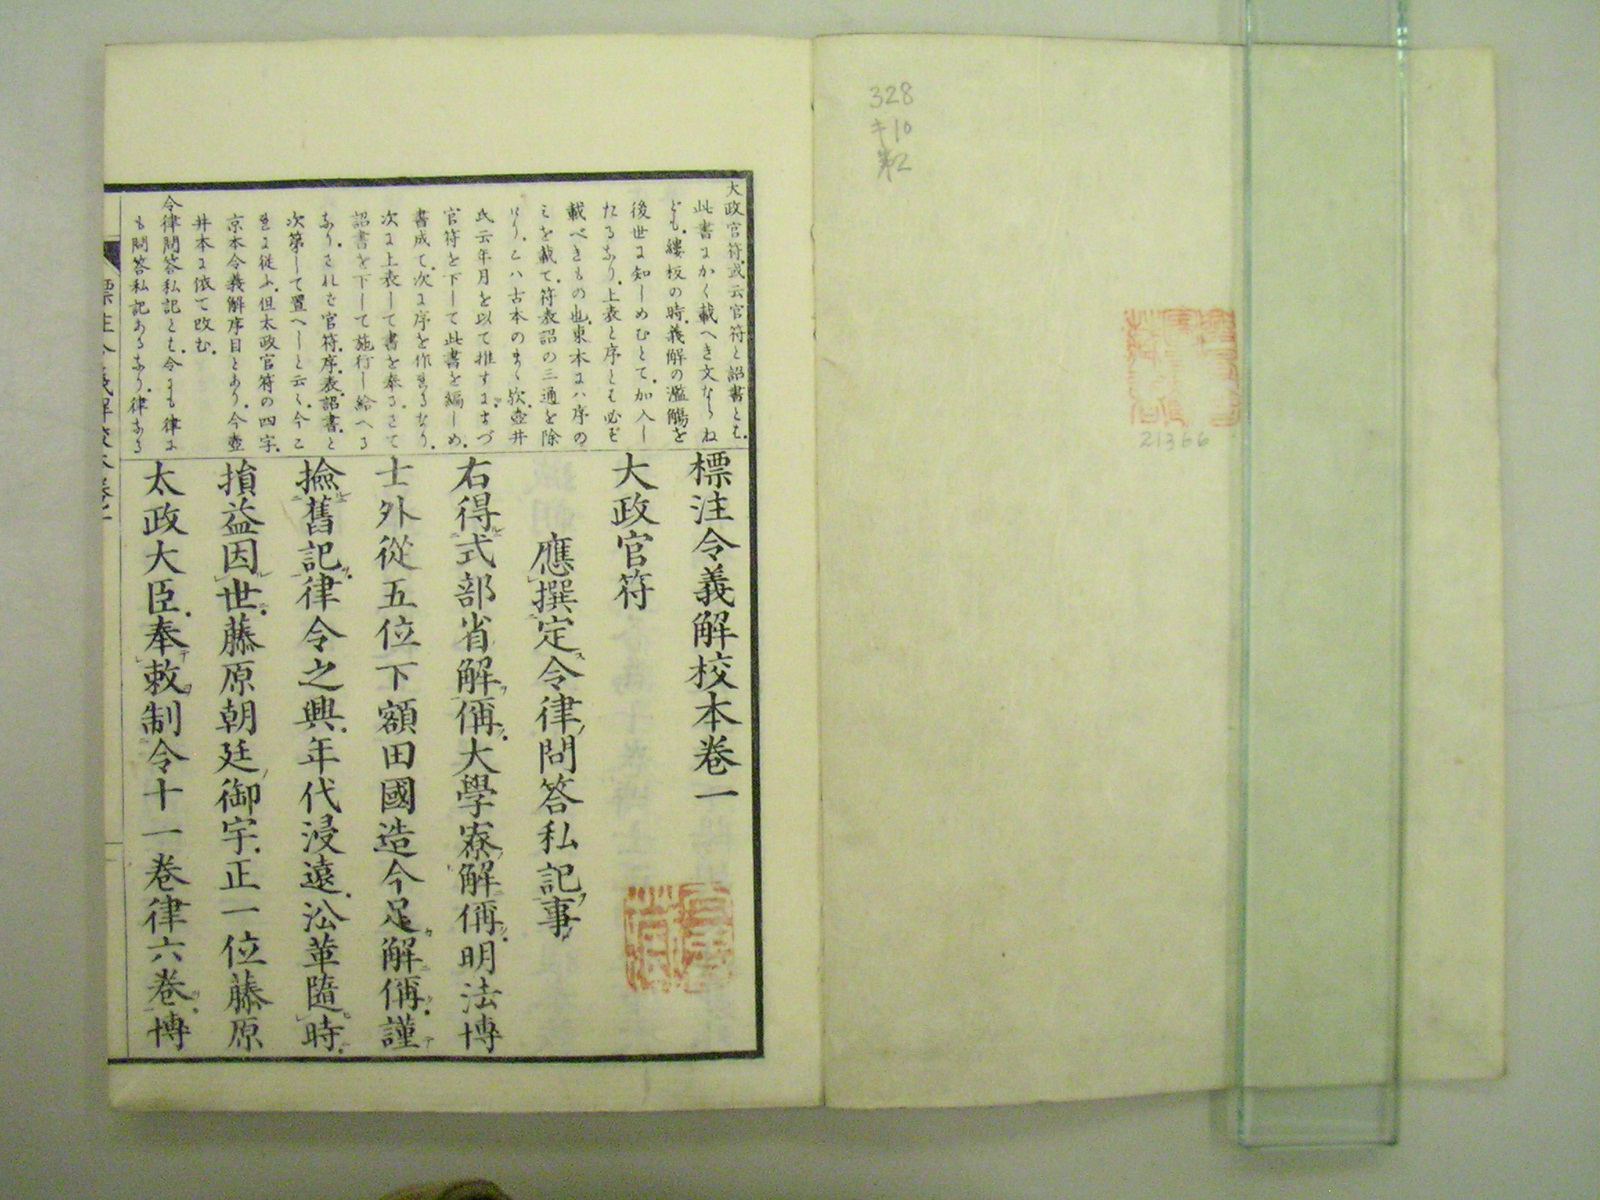 328
キ10
第2
21366
大政官符或云官符と詔書とも
此書にかく載へき文ならね
ども縷板の時義解の濫觴を
後世に知しめむとて加入し
たるなり上表と序とも必ず
載べきもの也東本にハ序の
みを載て符表詔の三通を除
けりこハ古本のまゝ歟壺井
氏云年月を以て推すにまづ
官符を下して此書を編しめ
書成て次に序を作れるなり
次に上表して書を奉るさて
詔書を下して施行し給へる
なりされは官符序表詔書と
次第して置へしと云々今こ
れに従ふ但太政官符の四字
京本令義解序目とあり今壺
井本に依て改む
令律問答私記とも今にも律に
も問答私記あるなり律なる
標注令義解校本卷一
大政官符
應撰定令律問答私記事
右得式部省解偁大學寮解偁明法博
士外從五位下額田國造今足解偁謹
撿舊記律令之興年代浸遠沿革隨時
損益因世藤原朝廷御宇正一位藤原
太政大臣奉敕制令十一卷律六卷博